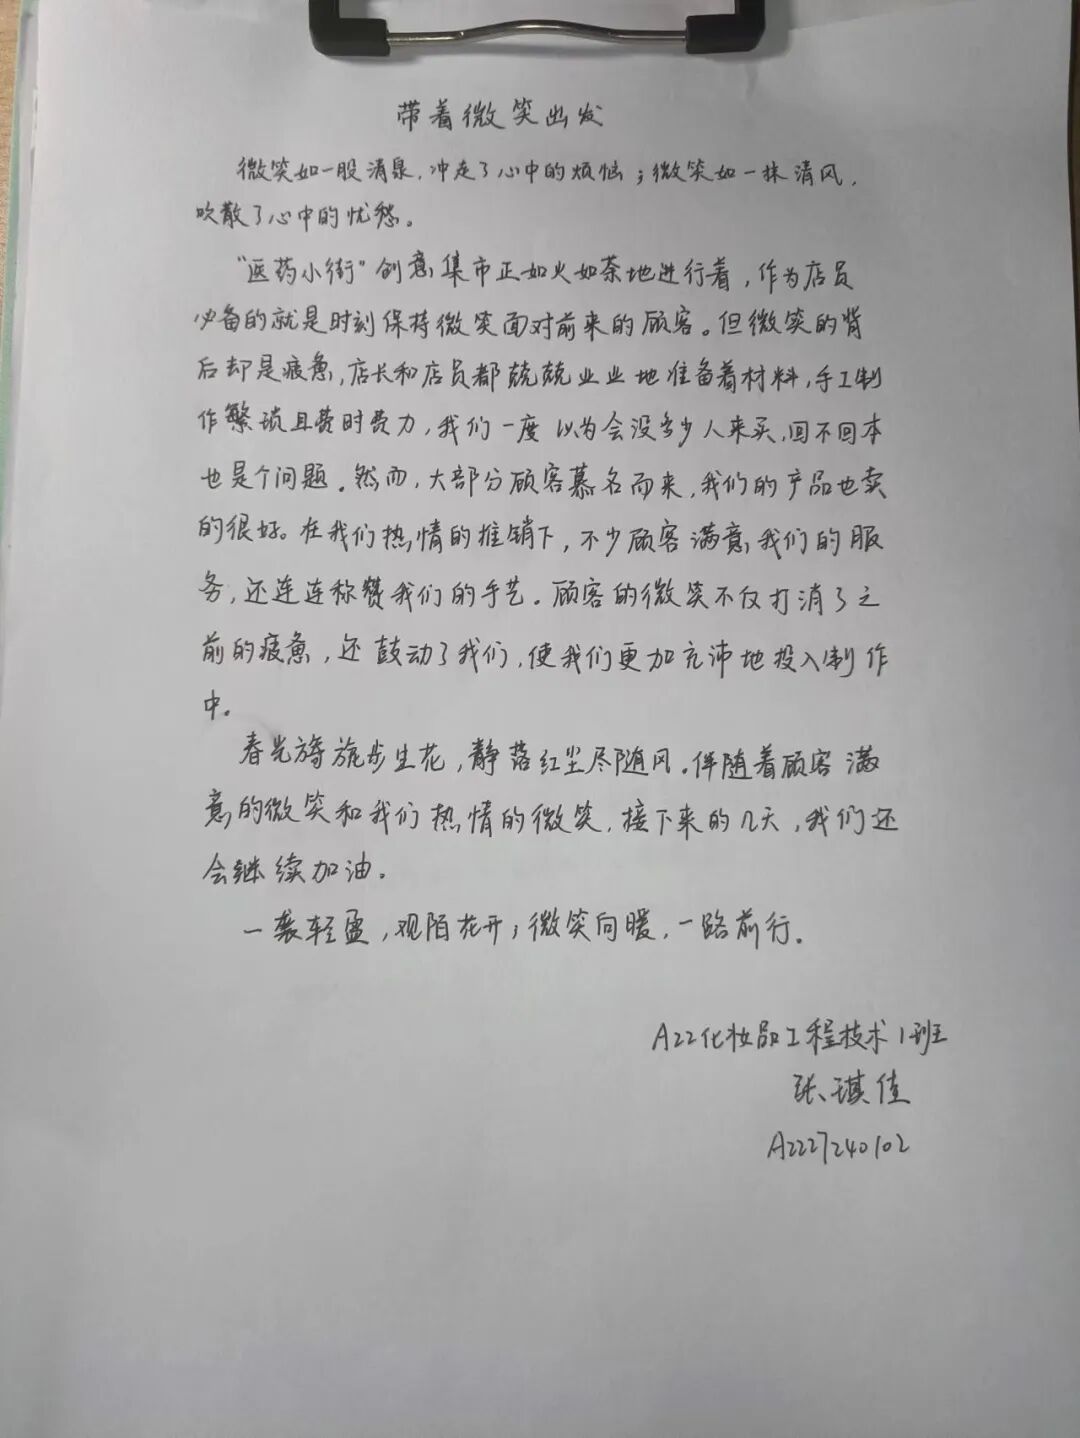 带着微笑出发
微笑如一股清泉，冲走了心中的烦恼；微笑如一抹清风，
吹散了心中的忧愁。
“医药小街”创意集市正如火如荼地进行着，作为店员
必备的就是时刻保持微笑面对前来的顾客。但微笑的背
后却是疲惫，店长和店员都兢兢业业地准备着材料，手工制
作繁琐且费时费力，我们一度以为会没多少人来买，回不回本
也是个问题。然而，大部分顾客慕名而来，我们的产品也卖
的很好。在我们热情的推销下，不少顾客满意我们的服
务，还连连称赞我们的手艺。顾客的微笑不仅打消了之
前的疲惫，还鼓动了我们，使我们更加充沛地投入制作
中。
春光旖旎步生花，静落红尘尽随风。伴随着顾客满
意的微笑和我们热情的微笑，接下来的几天，我们还
会继续加油。
一袭轻盈，观陌花开；微笑向暖，一路前行。
A22化妆品工程技术1班
张琪佳
A2227240102